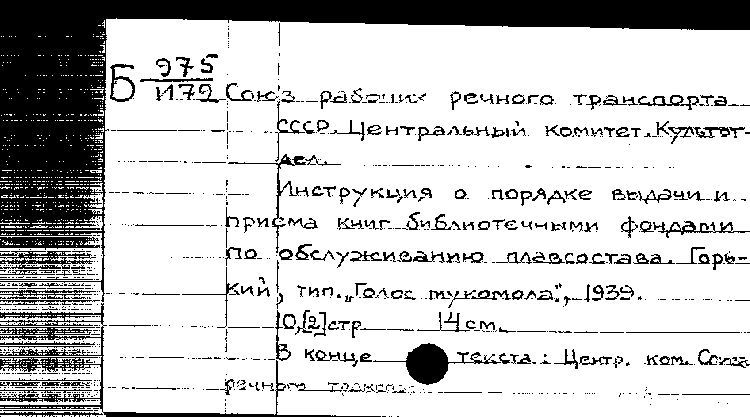 Б 975
И79 Союз рабочих речного транспорта
СССР. Центральный комитет. Культот-
дел.
Инструкция о порядке выдачи и
приема книг библиотечными фондами
по обслуживанию плавсостава. Горь-
кий, тип. „Голос мукомола", 1939.
10,[2] стр 14 см.
В конце текста: Центр. ком. Союза
речного